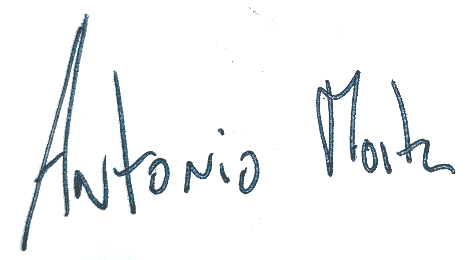 Antonio Moitz